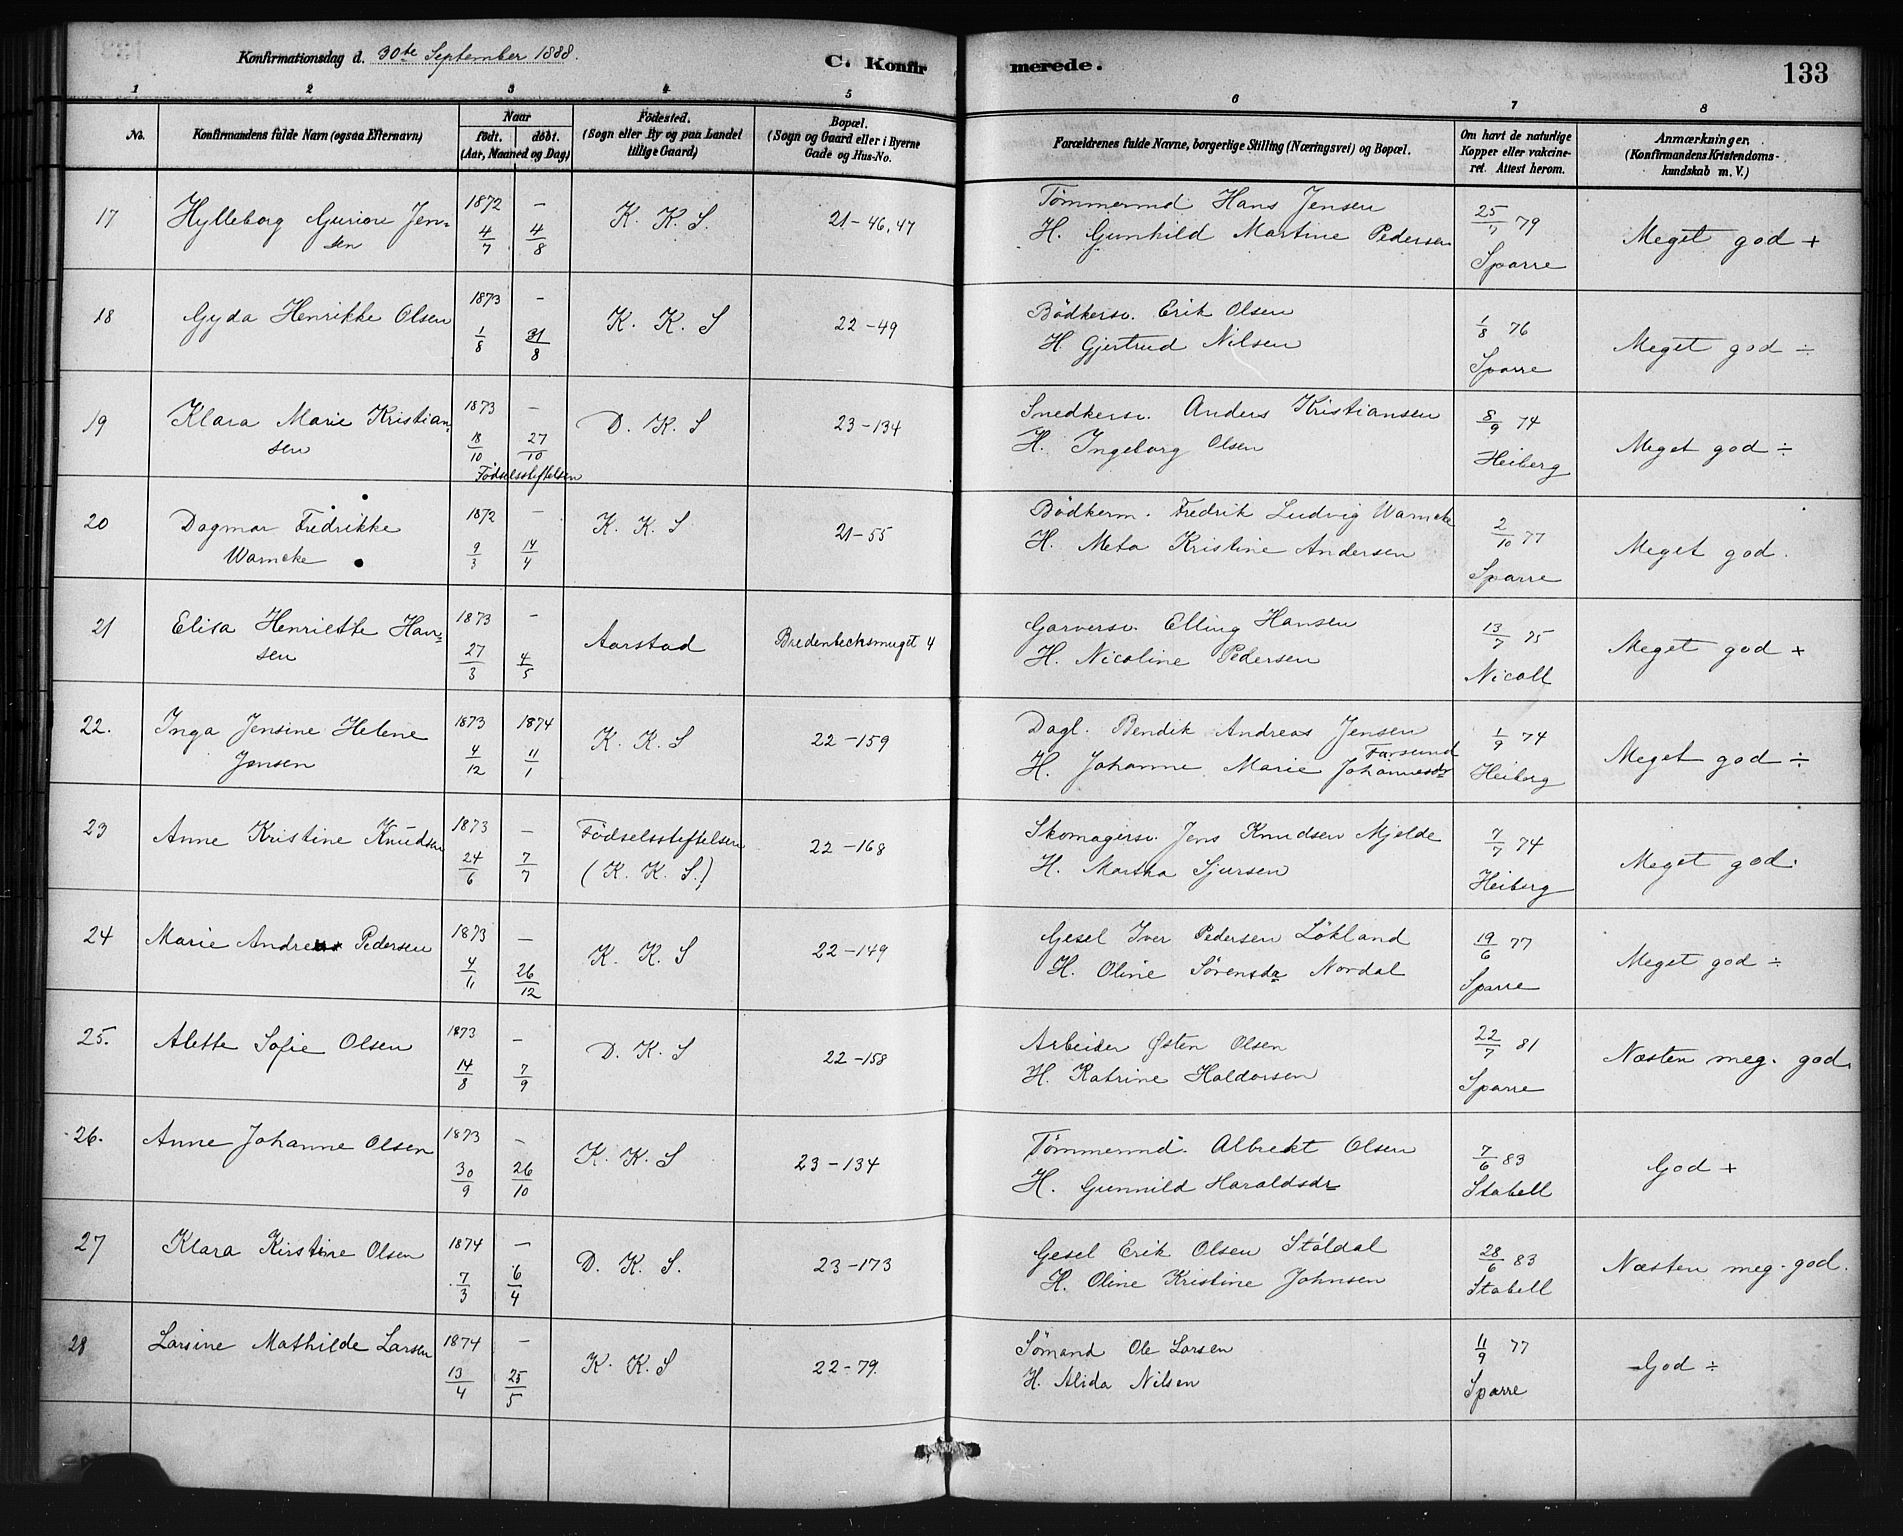 Konfirmationsdag d. 30te September 1888.
C. Konfirmerede.
133
1 2 3 4 5 6 7 8
No.
Konfirmandens fulde Navn (ogsaa Efternavn)
Naar
født. døbt.
(Aar, Maaned og Dag)
Fødested.
(Sogn eller By og paa Landet
tillige Gaard)
Bopæl.
(Sogn og Gaard eller i Byerne
Gade og Hus-No.
Forældrenes fulde Navne, borgerlige Stilling (Næringsvei) og Bopæl.
Om havt de naturlige
Kopper eller vakcine-
ret. Attest herom.
Anmærkninger.
(Konfirmandens Kristendoms-
kundskab m. V.)
17 Hylleborg Guriore Jen-
sen
1872 —
4/7 4/8
K. K. S.
21-46,47
Tømmermd Hans Jensen
H. Gunhild Martine Pedersen
25/7 79
Sparre
Meget god +
18 Gyda Henrikke Olsen
1873 —
1/8 31/8
K. K. S
22-49
Bödkersv. Erik Olsen
H. Gjertrud Nilsen
1/8 76
Sparre
Meget god ÷
19 Klara Marie Kristian-
sen
1873 —
18/10 27/10
Födselsstiftelsen
D. K. S
23-134
Snedkersv. Anders Kristiansen
H. Ingeborg Olsen
8/9 74
Heiberg
Meget god ÷
20 Dagmar Fredrikke
Warncke
1872 —
9/3 14/4
K. K. S
21-55
Bödkerm. Fredrik Ludvig Warncke
H. Meta Kristine Andersen
2/10 77
Sparre
Meget god.
21 Elisa Henriette Han-
sen
1873 —
27/3 4/5
Aarstad
Bredenbecksmuget 4
Garversv. Elling Hansen
H. Nicoline Pedersen
13/7 75
Nicoll
Meget god +
22. Inga Jensine Helene
Jensen
1873 1874
4/12 11/1
K. K. S
22-159
Dagl. Bendik Andreas Jensen
Farsund
H. Johanne Marie Johannesdr
1/9 74
Heiberg
Meget god ÷
23 Anne Kristine Knudsen
1873 —
24/6 7/7
Födselsstiftelsen
(K. K. S.)
22-168
Skomagersv. Jens Knudsen Mjelde
H. Martha Sjursen
7/7 74
Heiberg
Meget god.
24 Marie Andrea Pedersen
1873 —
4/11 26/12
K. K. S
22-149
Gesel Iver Pedersen Lökland
H. Oline Sörensdr Nordal
19/6 77
Sparre
Meget god ÷
25. Alette Sofie Olsen
1873 —
14/8 7/9
D. K. S
22-158
Arbeider Østen Olsen
H. Katrine Haldorsen
22/7 81
Sparre
Næsten meg. god.
26. Anne Johanne Olsen
1873 —
30/9 26/10
K. K. S
23-134
Tømmermd. Albrekt Olsen
H. Gunnild Haraldsdr
7/6 83
Stabell
God +
27 Klara Kirstine Olsen
1874 —
7/3 6/4
D. K. S.
23-173
Gesel Erik Olsen Stöldal
H. Oline Kristine Johnsen
28/6 83
Stabell
Næsten meg. god.
28 Larsine Mathilde Larsen
1874 —
13/4 25/5
K. K. S
22-79.
Sömand Ole Larsen
H. Alida Nilsen
11/9 77
Sparre
God ÷